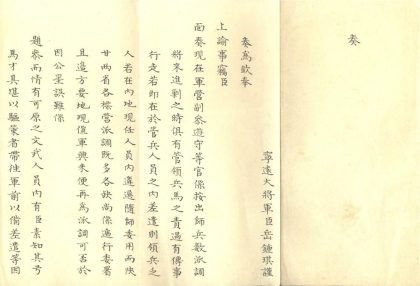 奏
寧遠大將軍臣岳鍾琪謹
奏爲欽奉
上諭事竊臣
面奏現在軍營副參遊守等官係按出師兵數派調
將來進剿之時俱有管領兵馬之責遇有傳事
行走若即在於管兵人員之內差遣則領兵乏
人若在內地現任人員內遴選隨師委用而陝
甘兩省各標營派調既多各缺尚係遞行委署
且邊方要地現值軍興未便再爲派調可否於
因公罣誤雖係
題參而情有可原之文武人員內有臣素知其弓
馬才具堪以驅策者帶往軍前以備差遣等因